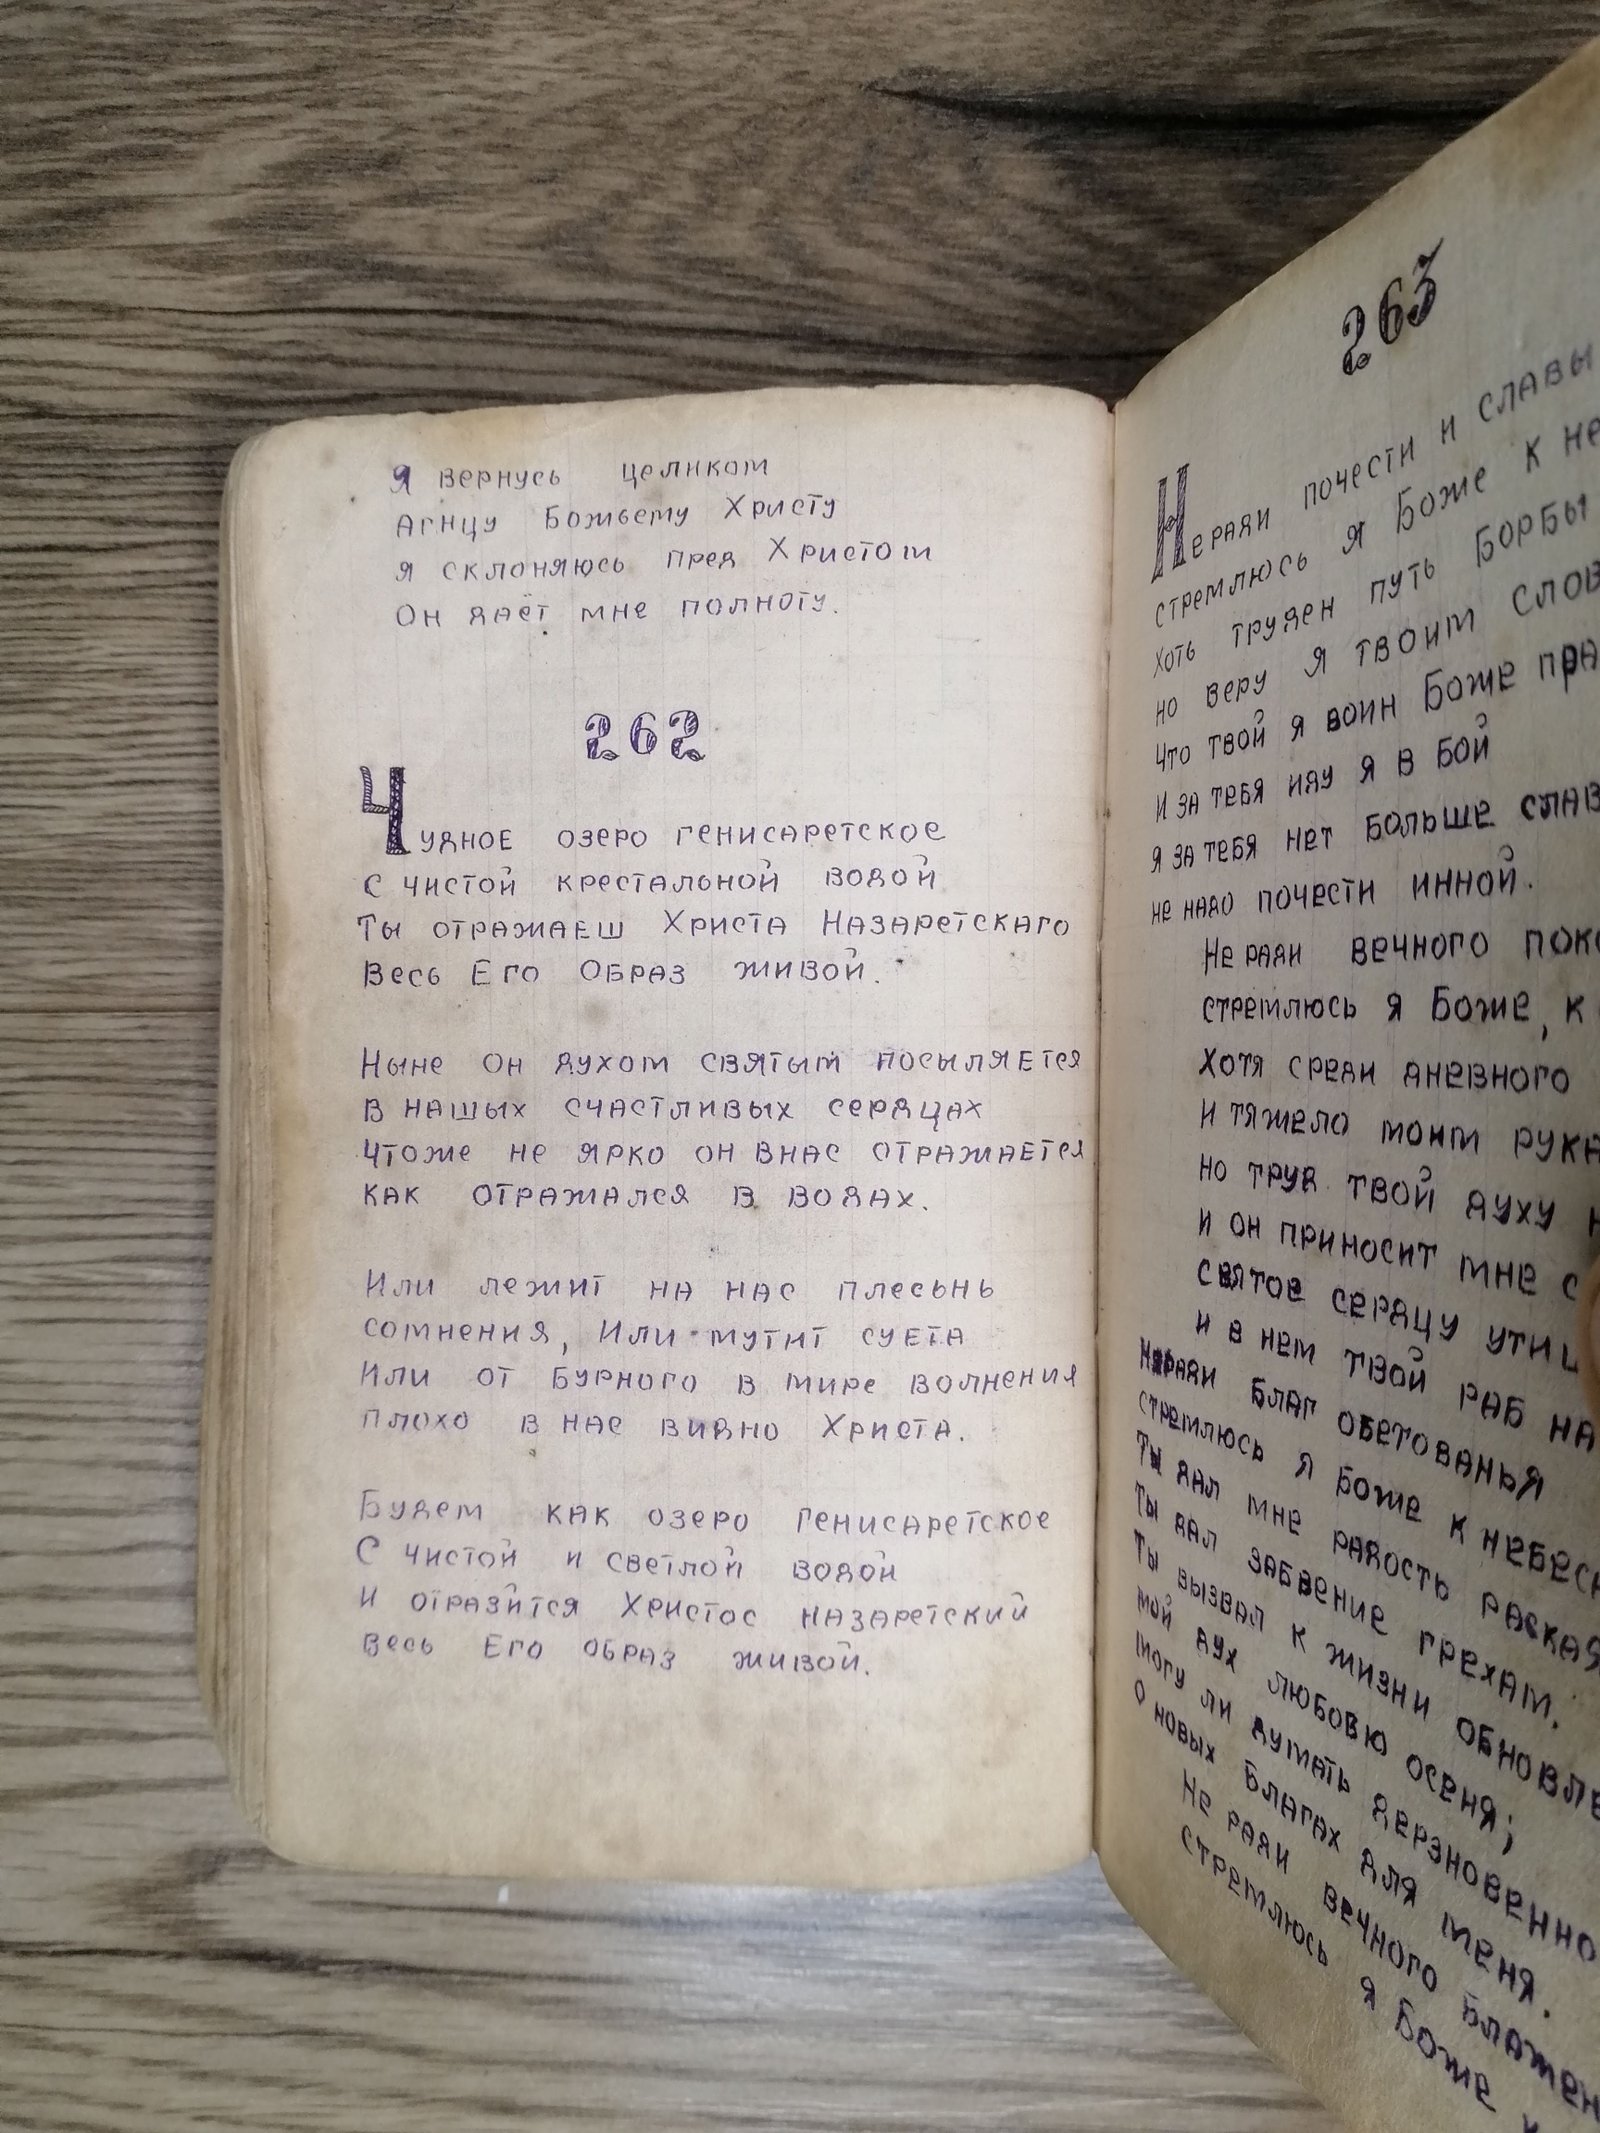 Я вернусь целиком
Агнцу Божьему Христу
Я склоняюсь пред Христом
Он даёт мне полноту.
262
Чудное озеро генисаретское
с чистой крестальной водой
Ты отражаеш Христа Назаретскаго
Весь Его образ живой.
Ныне он духом святым посыляется
в нашых счастливых сердцах
Чтоже не ярко он внас отражается
как отражался в водах.
Или лежит на нас плесьнь
сомнения, Или мутит суета
Или от бурного в мире волнения
плохо в нас видно Христа.
Будем как озеро генисаретское
С чистой и светлой водой
и отразится Христос назаретский
весь Его образ живой.
263
Не ради почести и славы
стремлюсь я Боже к
Хоть труден путь Борбы
но веру я твоим
Что твой я воин Боже
И за тебя иду я в бой
я за тебя нет больше
не надо почести инной.
Не ради вечного
стремлюсь я Боже, к
Хотя среди дневного
и тяжело моим
но труд твой духу
и он приносит мне
святое сердцу
и в нем твой раб
Неради благ обетованья
стремлюсь я Боже к
Ты дал мне радость
Ты дал забвение грехам.
Ты вызвал к жизни
мой дух любовю осеня;
могу ли думать дерзновенно
О новых благах для меня.
Не ради вечного
стремлюсь я Боже